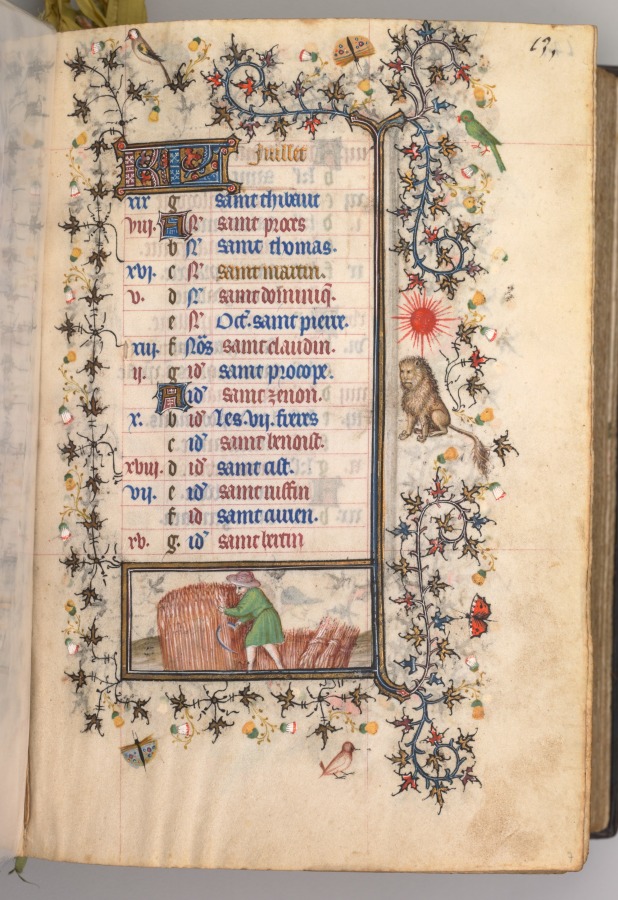 13,
KL Juillet
xix g saint thibaut
viii. A No̅ saint proces
b No̅ saint thomas.
xvi. c No̅ saint martin.
v. d No̅ saint dominiq̅.
e No̅ Oct̅. saint pierre.
xiii. f Nōs saint claudin.
ii. g id̾ saint procope.
A id̾ saint zenon.
x. b id̾ Les .vii. freres
c id̾ saint benoist.
xviii. d id̾ saint cist.
vii. e id̾ saint
f id̾ saint
xv. g. id̾ saint bertin